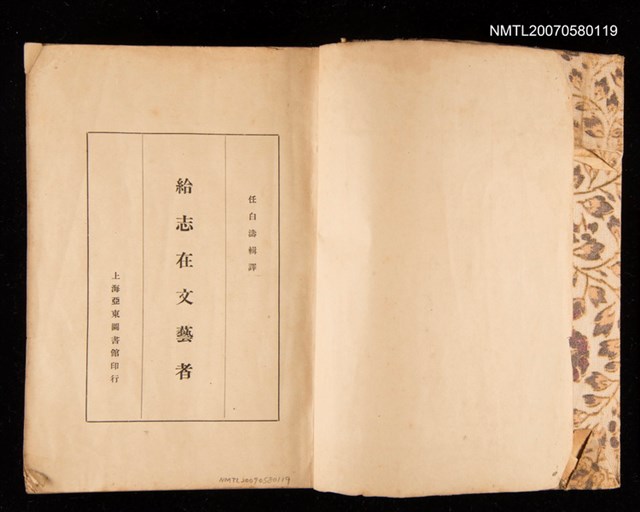 NMTL20070580119
任白濤輯譯
給志在文藝者
上海亞東圖書館印行
NMTL20070580119